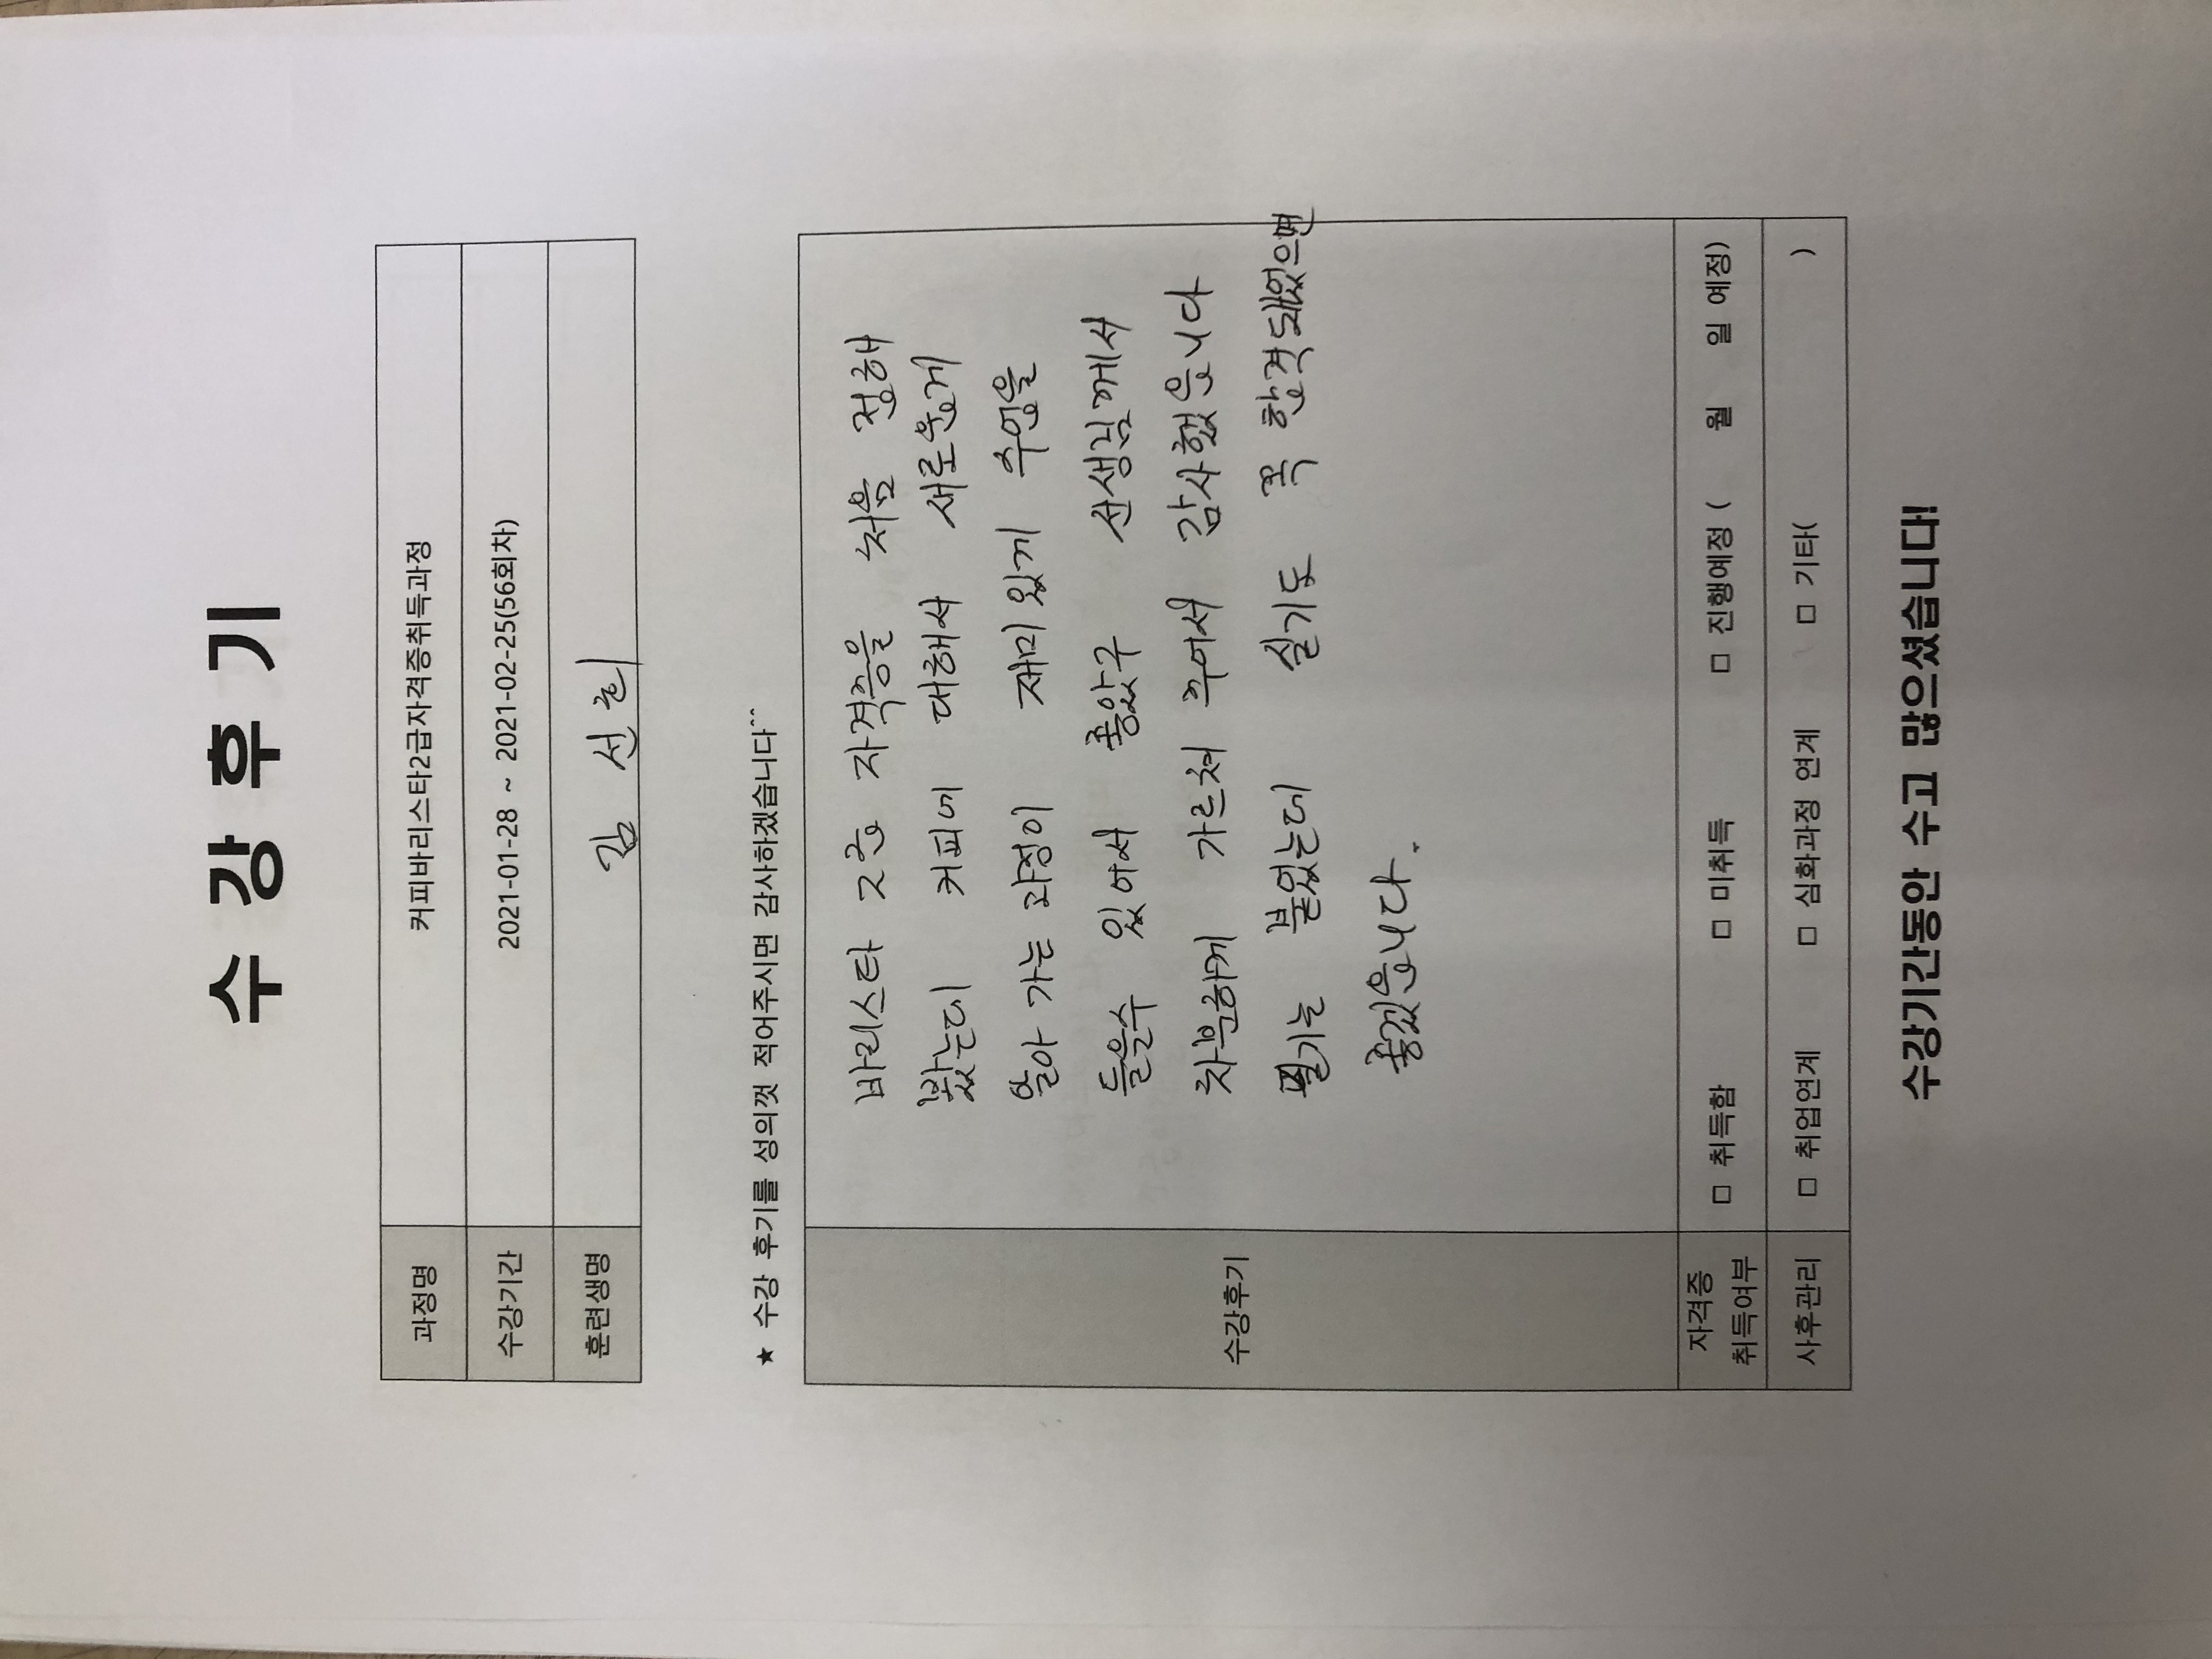 수 강 후 기
과정명 커피바리스타2급자격증취득과정
수강기간 2021-01-28 ~ 2021-02-25(56회차)
훈련생명 김 선희
★ 수강 후기를 성의껏 적어주시면 감사하겠습니다^^
수강후기
바리스타 2급 자격증을 처음 접해
봤는데 커피에 대해서 새로웁게
알아 가는 과정이 재미있게 수업을
들을수 있어서 좋았구 선생님께서
차분하게 가르쳐 주어서 감사했읍니다
필기는 붙었는데 실기도 꼭 합격돼었으면
좋겠읍니다.
자격증
취득여부 □ 취득함 □ 미취득 □ 진행예정 ( 월 일 예정)
사후관리 □ 취업연계 □ 심화과정 연계 □ 기타( )
수강기간동안 수고 많으셨습니다!